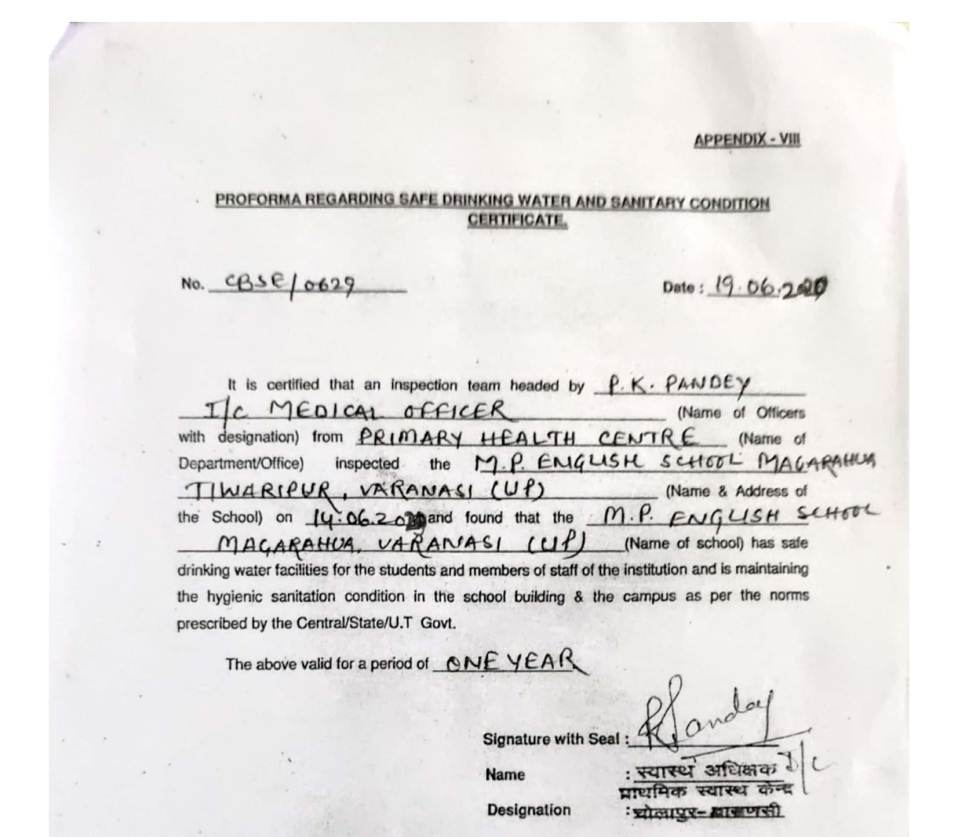 APPENDIX - VIII
PROFORMA REGARDING SAFE DRINKING WATER AND SANITARY CONDITION
CERTIFICATE.
No. CBSE/0629 Date : 19.06.2020
It is certified that an inspection team headed by P.K. PANDEY
I/c MEDICAL OFFICER (Name of Officers
with designation) from PRIMARY HEALTH CENTRE (Name of
Department/Office) inspected the M.P. ENGLISH SCHOOL MAGARAHUA
TIWARIPUR, VARANASI (UP) (Name & Address of
the School) on 14.06.2020 and found that the M.P. ENGLISH SCHOOL
MAGARAHUA, VARANASI (UP) (Name of school) has safe
drinking water facilities for the students and members of staff of the institution and is maintaining
the hygienic sanitation condition in the school building & the campus as per the norms
prescribed by the Central/State/U.T Govt.
The above valid for a period of ONE YEAR
Signature with Seal : PKPandey
Name : स्वास्थ अधिक्षक I/C
प्राथमिक स्वास्थ केन्द्र
Designation : चोलापुर-वाराणसी